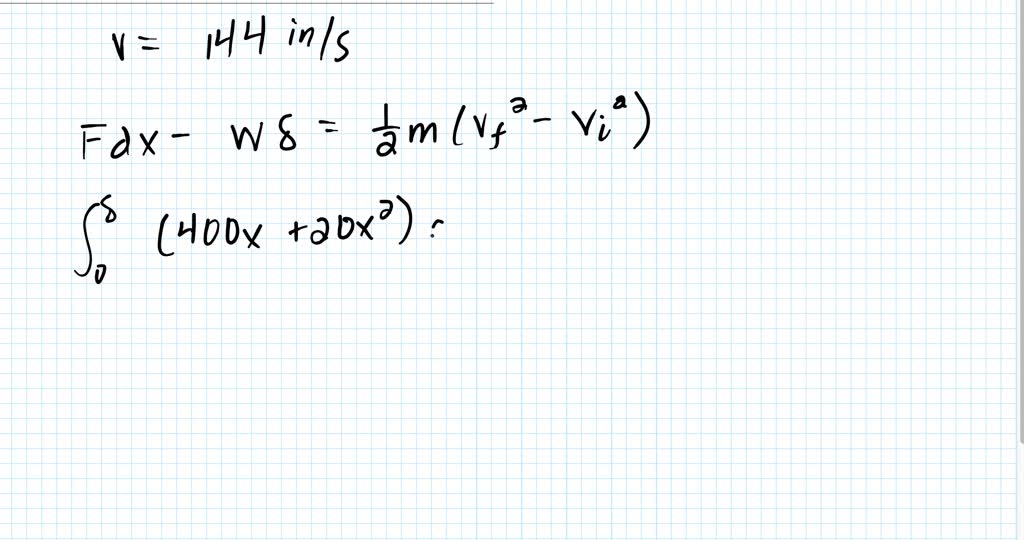 v = 144 in/s
Fdx - Wδ = 1/2 m (Vf² - Vi²)
∫₀^δ (400x + 20x²)